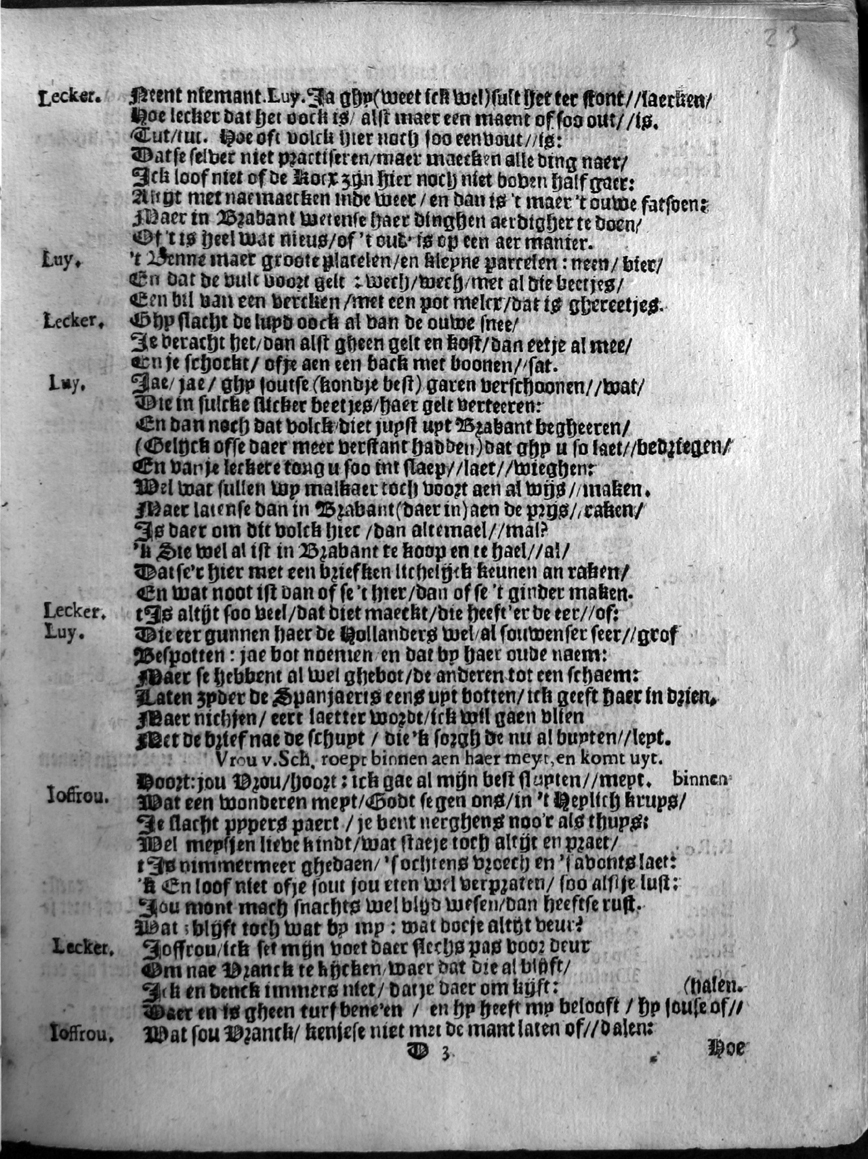 23
Lecker. Neent niemant. Luy. Ja ghy (weet ick wel) sult het ter stont//laecken/
Hoe lecker dat het oock is/ alst maer een maent of soo out//is.
Tut/tut. Hoe oft volck hier noch soo eenvout//is:
Datse selver niet practiseren/maer maecken alle ding naer/
Ick loof niet of de Kocx zijn hier noch niet boven half gaer:
Altijt met naemaecken inde weer/ en dan is 't maer 't ouwe fatsoen:
Maer in Brabant wetense haer dinghen aerdigher te doen/
Of 't is heel wat nieus/of 't oud' is op een aer manier.
Luy. 't Benne maer groote platelen/en kleyne parcelen: neen/ hier/
En dat de vult voort gelt: wech/wech/met al die beetjes/
Een bil van een vercken/met een pot melcx/dat is ghereetjes.
Lecker. Ghy slacht de luyd oock al van de ouwe snee/
Je veracht het/dan alst gheen gelt en kost/dan eetje al mee/
En je schockt/ ofje aen een back met boonen//sat.
Luy. Jae/ jae/ ghy soutse (kondje best) garen verschoonen//wat/
Die in sulcke slicker beetjes/haer gelt verteeren:
En dan noch dat volck diet juyst uyt Brabant begheeren/
(Gelijck ofse daer meer verstant hadden) dat ghy u so laet//bedriegen/
En van je leckere tong u soo int slaep//laet//wieghen:
Wel wat sullen wy malkaer toch voort aen al wijs//maken.
Maer latense dan in Brabant (daer in) aen de prijs//raken/
Is daer om dit volck hier/dan altemael//mal?
'k Sie wel al ist in Brabant te koop en te hael//al/
Datse'r hier met een briefken lichelijck keunen an raken/
En wat noot ist dan of se 't hier/dan of se 't ginder maken.
Lecker. t'Is altijt soo veel/dat diet maeckt/die heeft'er de eer//of:
Luy. Die eer gunnen haer de Hollanders wel/al souwenser seer//grof
Bespotten: jae bot noemen en dat by haer oude naem:
Maer se hebbent al wel ghebot/de anderen tot een schaem:
Laten zyder de Spanjaerts eens uyt botten/ick geeft haer in drien.
Maer nichjen/ eert laetter wordt/ick wil gaen vlien
Met de brief nae de schuyt/ die 'k sorgh de nu al buyten//leyt.
Vrou v. Sch. roept binnen aen haer meyt, en komt uyt.
Hoort: jou Vrou/hoort: ick gae al mijn best sluyten//meyt. binnen
Ioffrou. Wat een wonderen meyt/Godt segen ons/in 't Heylich kruys/
Je slacht pypers paert/ je bent nerghens noo'r als thuys:
Wel meysjen lieve kindt/wat staeje toch altijt en praet/
t'Is nimmermeer ghedaen/ 's ochtens vroech en 's avonts laet:
'k En loof niet ofje sout jou eten wel verpraten/ soo alsje lust:
Jou mont mach snachts wel blijd wesen/dan heeftse rust.
Wat blijft toch wat by my: wat doeje altijt veur?
Lecker. Joffrou/ick set mijn voet daer slechs pas voor deur
Om nae Vranck te kijcken/waer dat die al blijft/
Ick en denck immers niet/ datje daer om kijft: (halen.
Daer en is gheen turf bene'en / en hy heeft my belooft/ hy souse of//
Ioffrou. Wat sou Vranck/ kenjese niet met de mant laten of//dalen:
D 3 Hoe